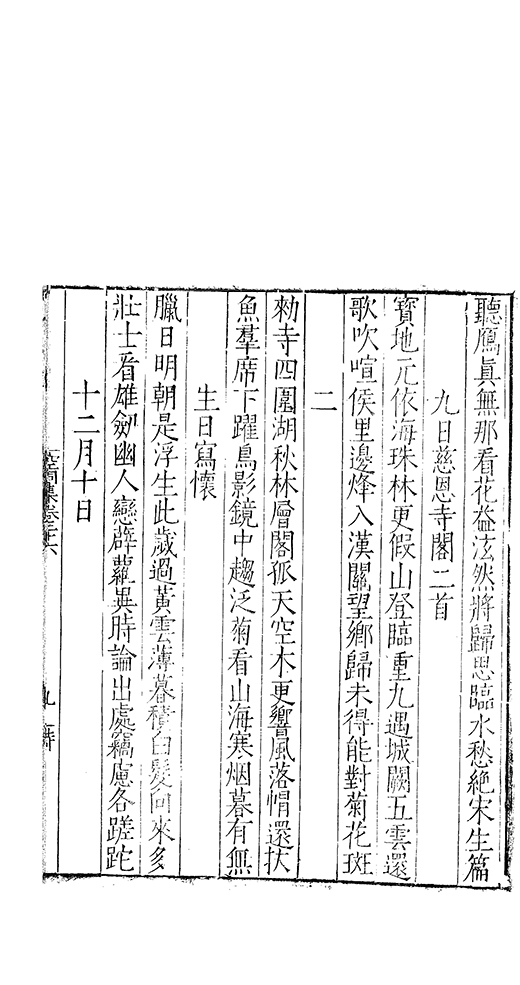 聽鴈眞無那看花益泫然將歸思臨水愁絶宋生篇
九日慈恩寺閣二首
寶地元依海珠林更假山登臨重九遇城闕五雲還
歌吹喧侯里邊烽入漢關望鄉歸未得能對菊花斑
二
勑寺四圍湖秋林層閣孤天空木更響風落帽還扶
魚羣席下躍鳥影鏡中趨泛菊看山海寒烟暮有無
生日寫懷
臘日明朝是浮生此歲過黃雲薄暮積白髮向來多
壯士看雄劒幽人戀薜蘿異時論出處竊慮各蹉跎
十二月十日
空同集卷二十六
九